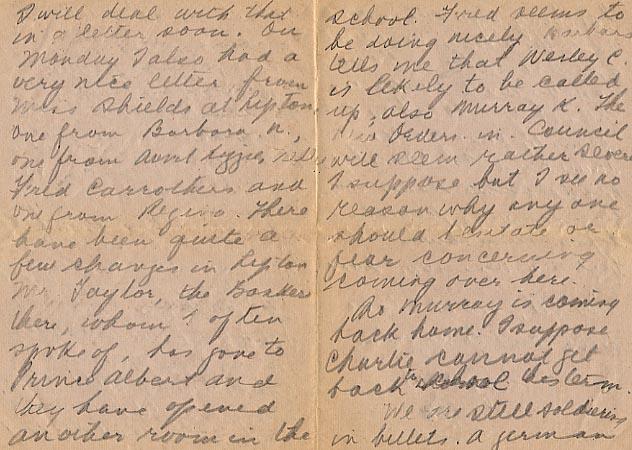 I will deal with that
in a letter soon. On
Monday I also had a
very nice letter from
Miss Shields at Lipton
one from Barbara N.,
one from Avril
Fred Carrothers and
one from Regina. There
have been quite a
few changes in Lipton
Mr. Taylor, the Banker
there, whom I often
spoke of, has gone to
Prince Albert and
they have opened
another room in the
school. Fred seems to
be doing nicely Barbara
tells me that Wesley C.
is likely to be called
up, also Murray K. The
Orders in Council
will seem rather severe
I suppose but I see no
reason why any one
should hesitate or
fear concerning
coming over here.
So Murray is coming
back home. I suppose
Charlie cannot get
back to school this term.
We are still soldiering
in billets. A german